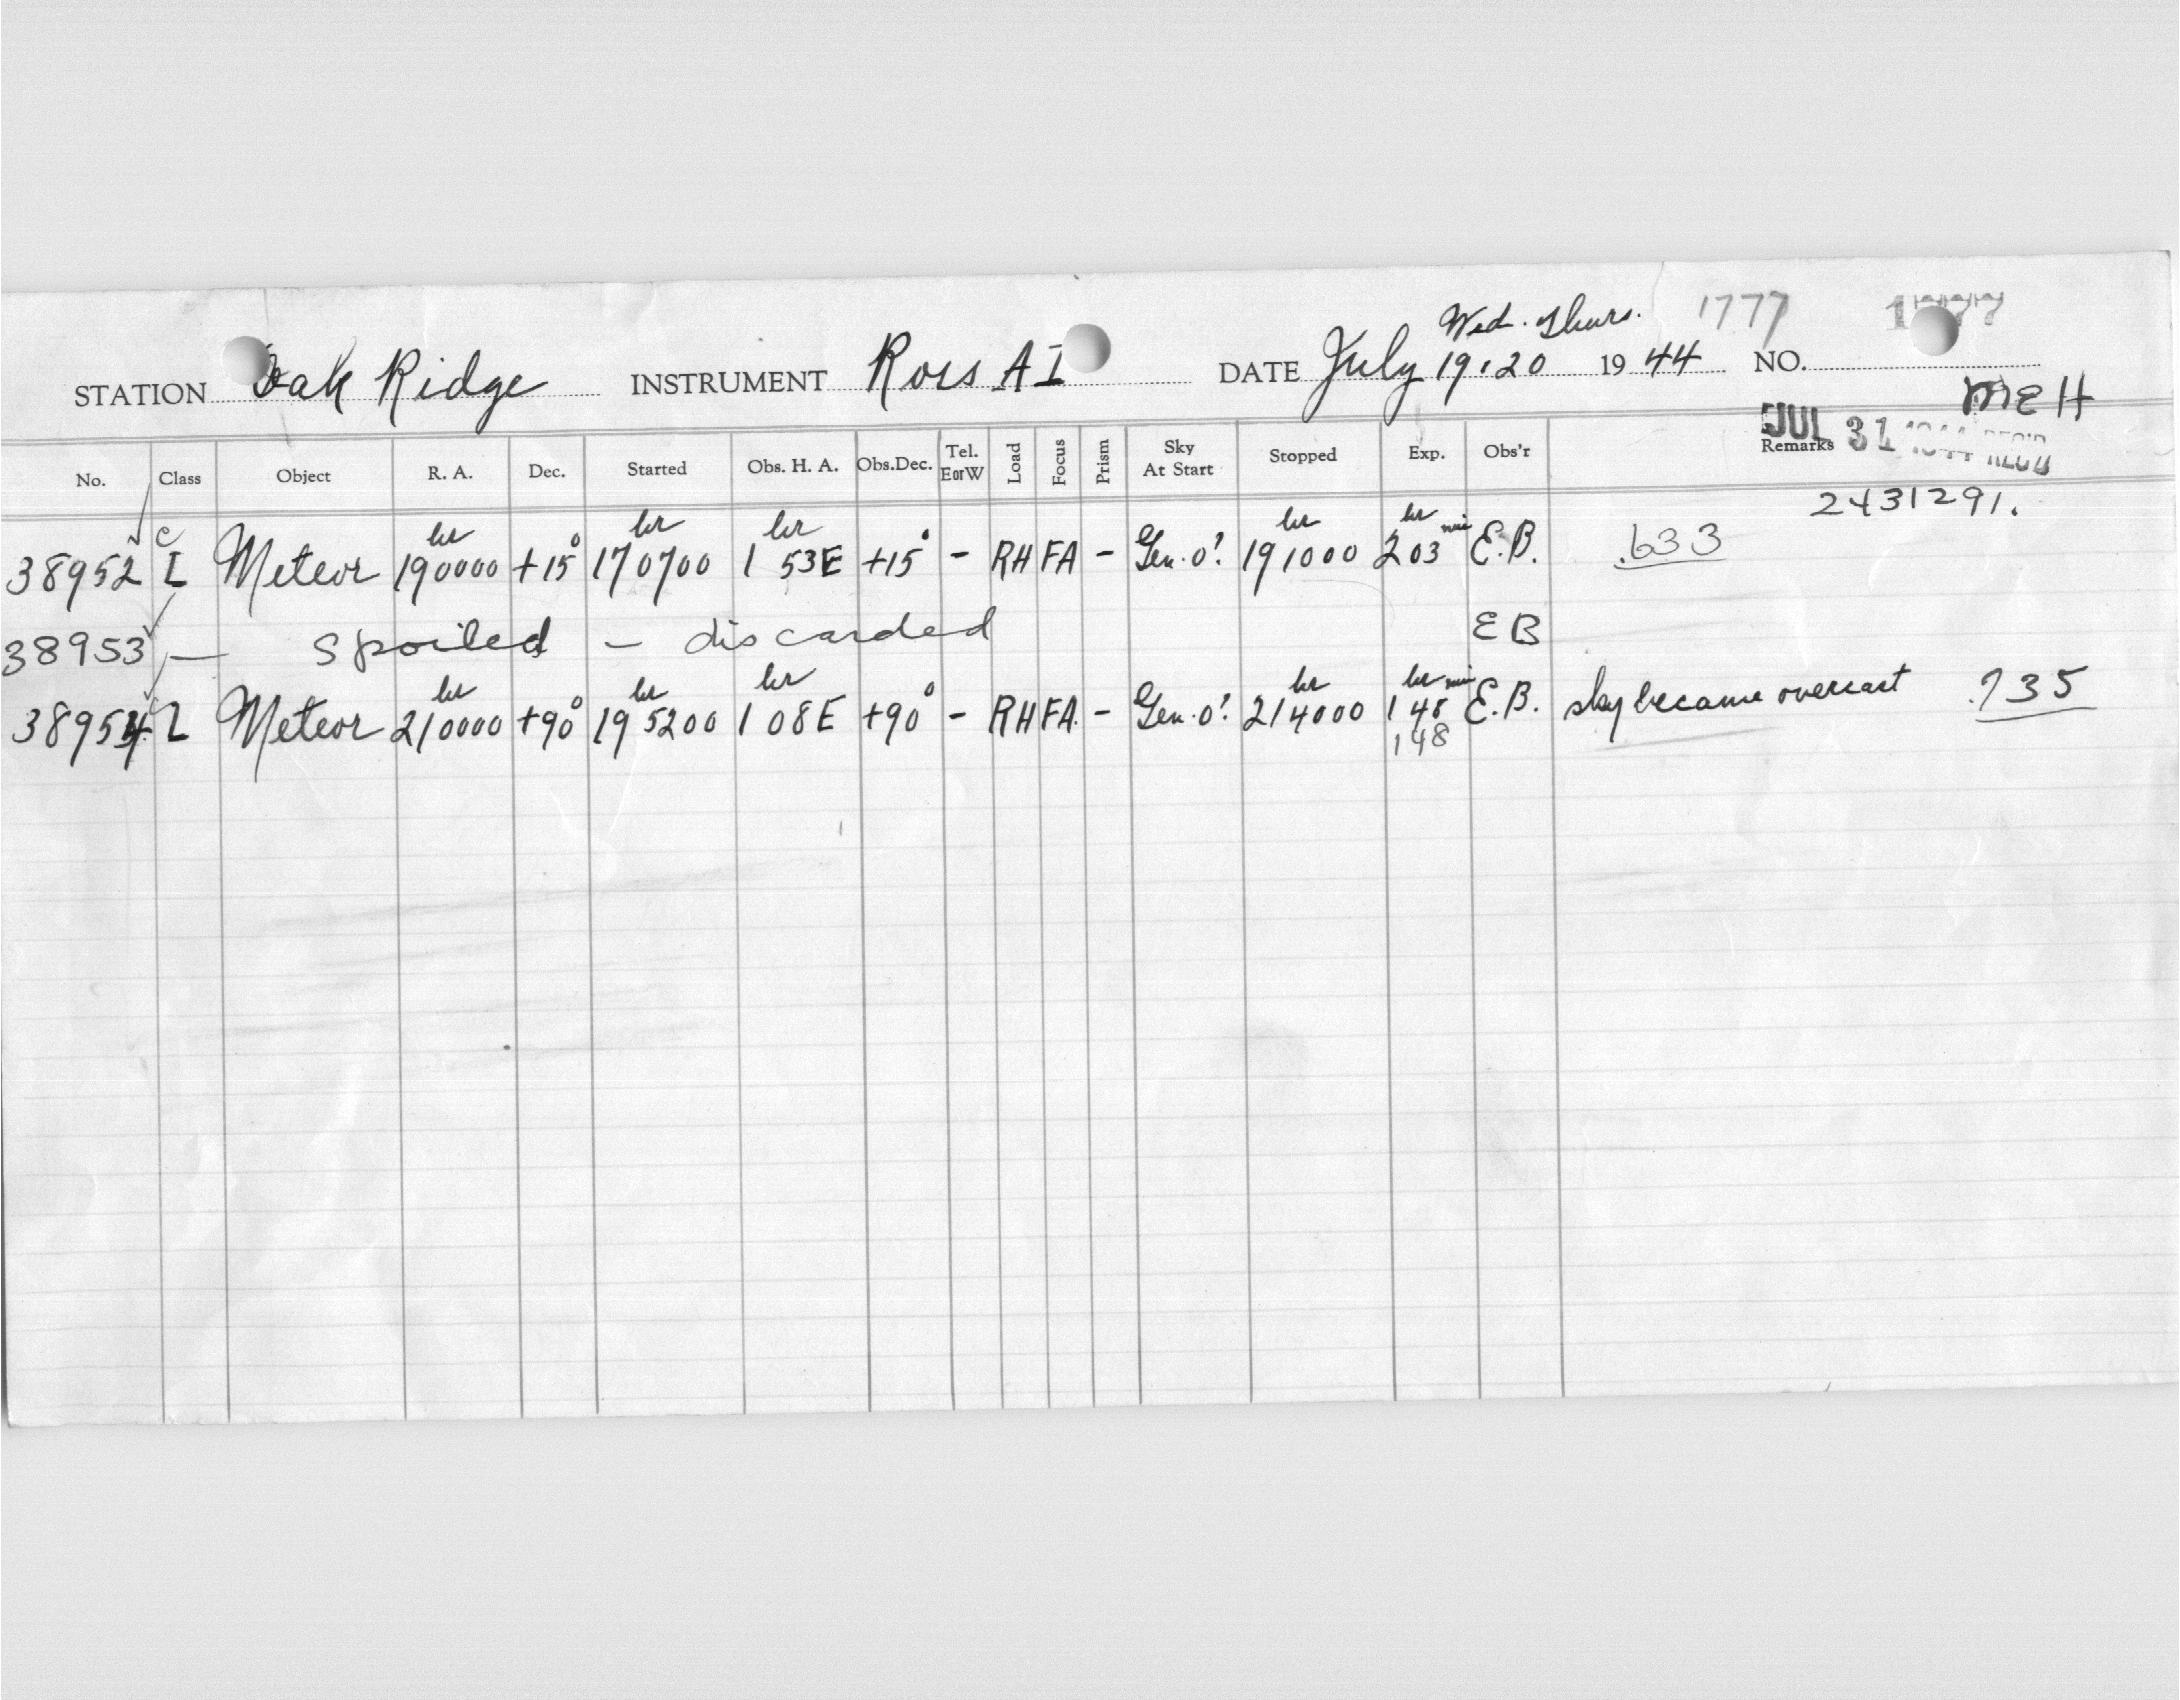 Wed. Thurs. 1777 1777
STATION Oak Ridge INSTRUMENT Ross AI DATE July 19.20 1944 NO.
MEH
JUL 31 1944 REC'D
No. Class Object R. A. Dec. Started Obs. H. A. Obs. Dec. Tel. E or W Load Focus Prism Sky At Start Stopped Exp. Obs'r Remarks
2431291.
38952 C I Meteor 19 hr 0000 +15° 17 hr 0700 1 hr 53E +15° - RH FA - Gen. 0? 19 hr 1000 2 hr 03 min E.B. .633
38953 — spoiled - discarded EB
38954 C I Meteor 21 hr 0000 +90° 19 hr 5200 1 hr 08E +90° - RH FA. - Gen. 0? 21 hr 4000 1 hr 48 min E.B. sky became overcast .735
148